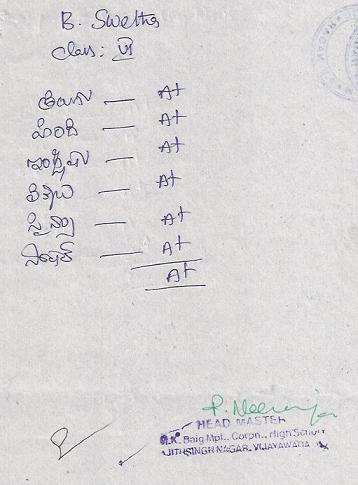 B. Swetha
Class: VI
తెలుగు — A+
హిందీ — A+
ఇంగ్లీషు — A+
గణితం — A+
సైన్సు — A+
సోషల్ — A+
A+
HEAD MASTER
M.K. Baig Mpl., Corpn., High School
AJITHSINGH NAGAR, VIJAYAWADA